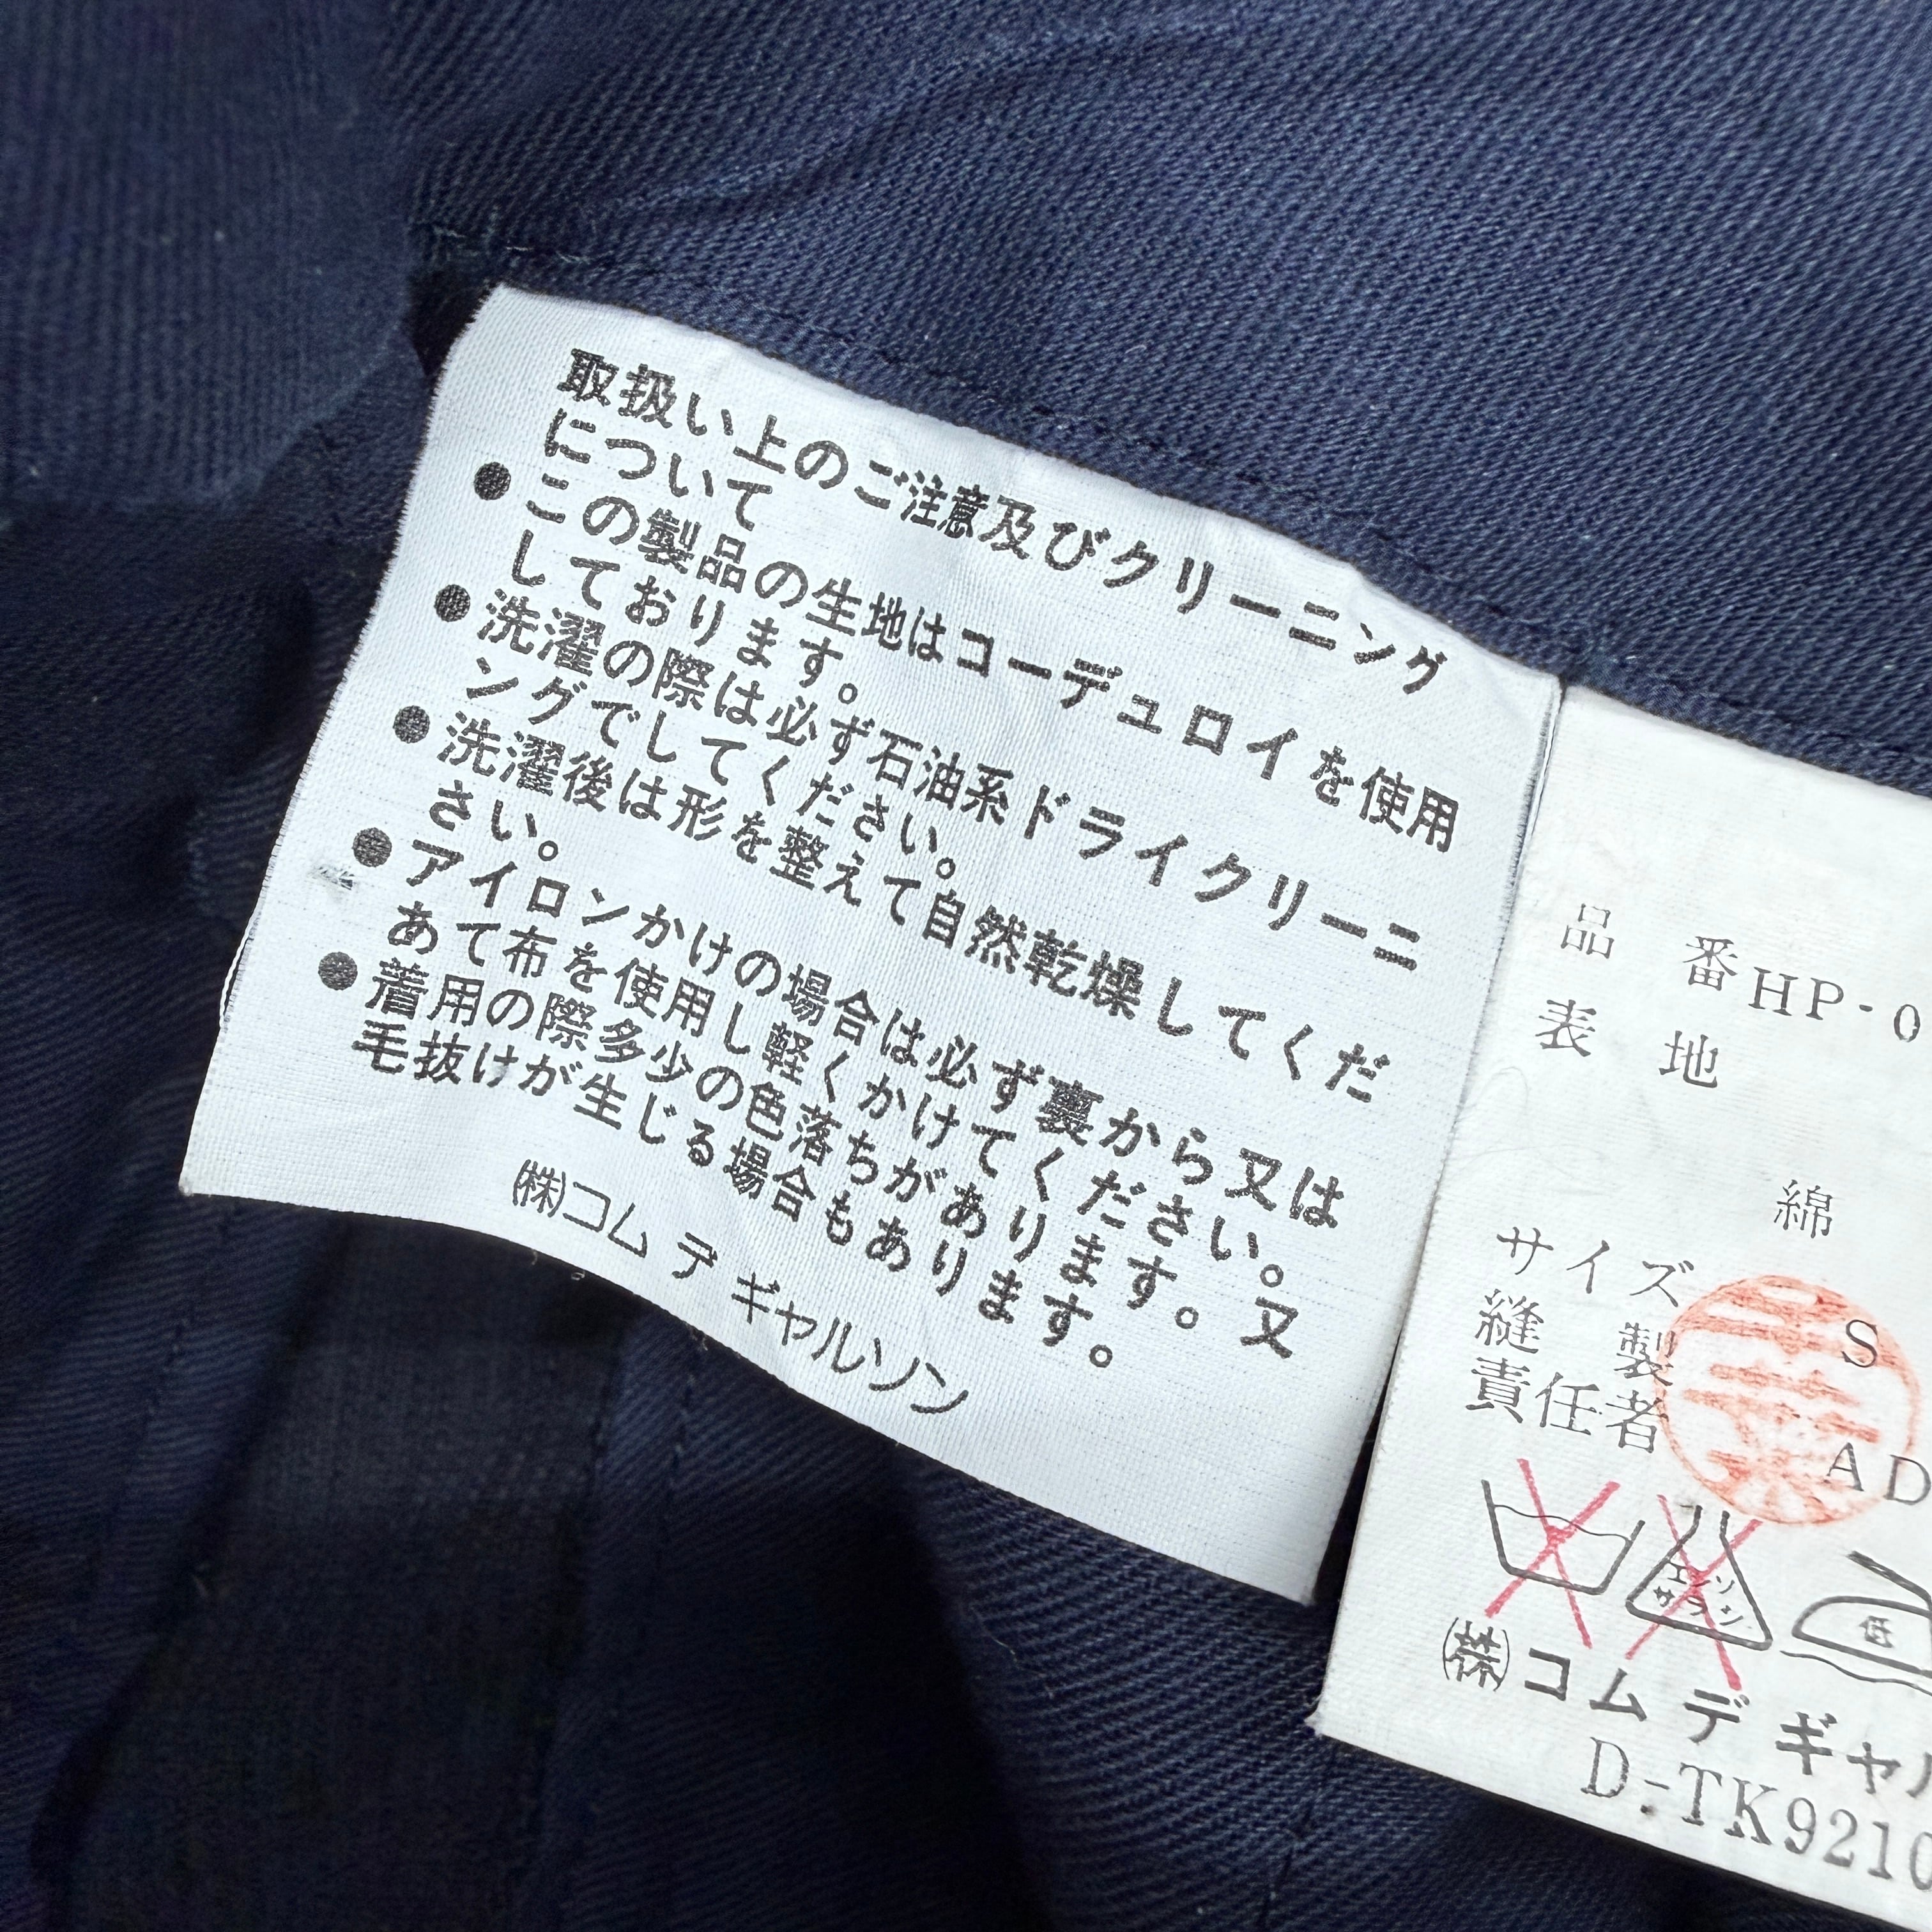 取扱い上のご注意及びクリーニング
について
●この製品の生地はコーデュロイを使用
しております。
●洗濯の際は必ず石油系ドライクリーニ
ングでしてください。
●洗濯後は形を整えて自然乾燥してくだ
さい。
●アイロンかけの場合は必ず裏から又は
あて布を使用し軽くかけてください。又
●着用の際多少の色落ちがあります。
毛抜けが生じる場合もあります。
㈱コム デ ギャルソン
品 番 HP-0
表 地
綿
サイズ S
縫製
責任者
AD
エンソ
サラシ
低
㈱コム デ ギャル
D-TK9210